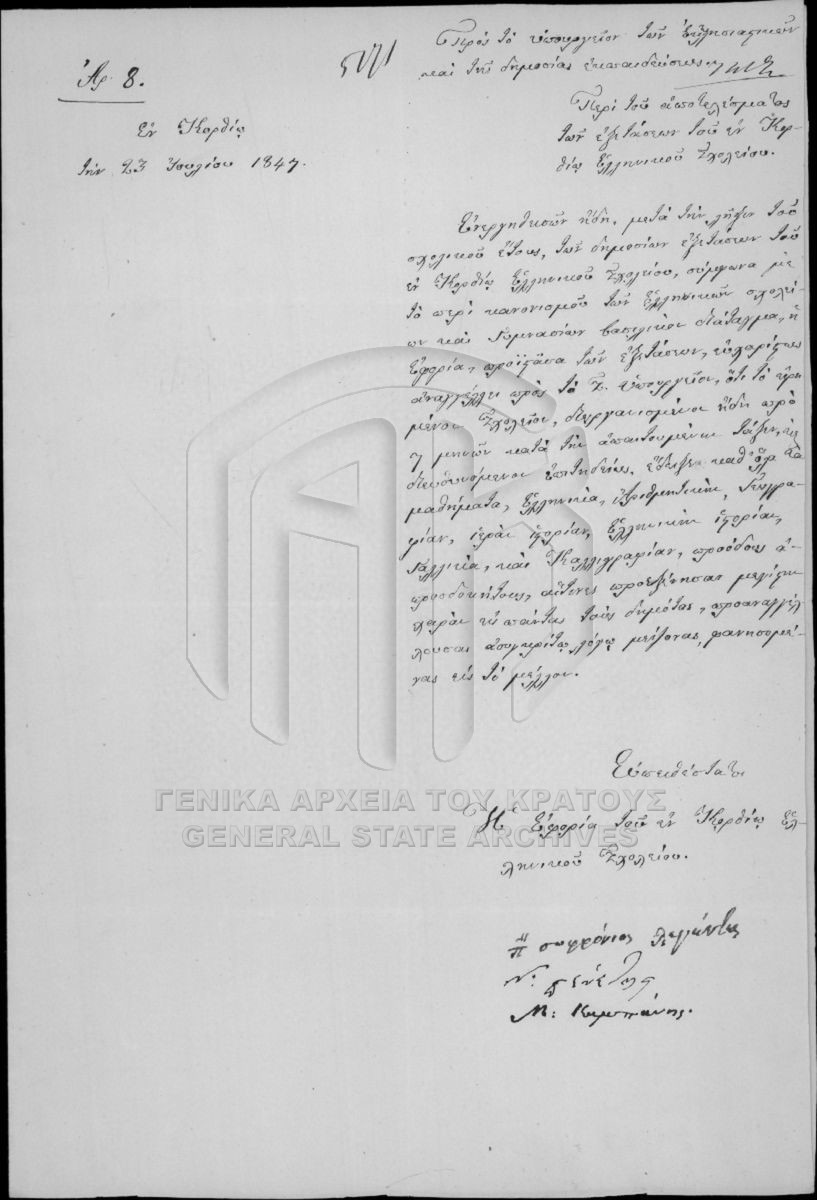 Ἀρ. 8.
Ἐν Κορθίῳ
τὴν 23 Ἰουλίου 1847.
Πρὸς τὸ ὑπουργεῖον τῶν ἐκκλησιαστικῶν
καὶ τῆς δημοσίας ἐκπαιδεύσεως
Περὶ τοῦ ἀποτελέσματος
τῶν ἐξετάσεων τοῦ ἐν Κορ-
θίῳ Ἑλληνικοῦ Σχολείου.
Ἐνεργηθεισῶν ἤδη, μετὰ τὴν λῆξιν τοῦ
σχολικοῦ ἔτους, τῶν δημοσίων ἐξετάσεων τοῦ
ἐν Κορθίῳ Ἑλληνικοῦ Σχολείου, σύμφωνα μὲ
τὸ περὶ κανονισμοῦ τῶν Ἑλληνικῶν σχολεί-
ων καὶ Γυμνασίων βασιλικὸν διάταγμα, ἡ
Ἐφορία, προϊστᾶσα τῶν ἐξετάσεων, εὐχαρίστως
ἀναγγέλλει πρὸς τὸ Σ. Ὑπουργεῖον, ὅτι τὸ εἰρη-
μένον Σχολεῖον, διωργανισμένον ἤδη πρὸ
7 μηνῶν κατὰ τὴν ἀπαιτουμένην τάξιν,
διευθυνόμενον ἐπιτηδείως, ἔδειξεν καθ' ὅλα τὰ
μαθήματα, Ἑλληνικὰ, Ἀριθμητικὴν, Γεωγρα-
φίαν, ἱερὰν ἱστορίαν, Ἑλληνικὴν ἱστορίαν,
Γαλλικὰ, καὶ Καλλιγραφίαν, προόδους ἀ-
προσδοκήτους, αἵτινες προεξένησαν μεγίστην
χαρὰν εἰς πάντας τοὺς δημότας, προαναγγέλ-
λουσαι ἀσυγκρίτῳ λόγῳ μείζονας, φανησομέ-
νας εἰς τὸ μέλλον.
Εὐπειθέστατοι
Ἡ Ἐφορία τοῦ ἐν Κορθίῳ Ἑλ-
ληνικοῦ Σχολείου.
σωφρόνιος
Ν.
Μ: Καμπάνης.
ΓΕΝΙΚΑ ΑΡΧΕΙΑ ΤΟΥ ΚΡΑΤΟΥΣ
GENERAL STATE ARCHIVES